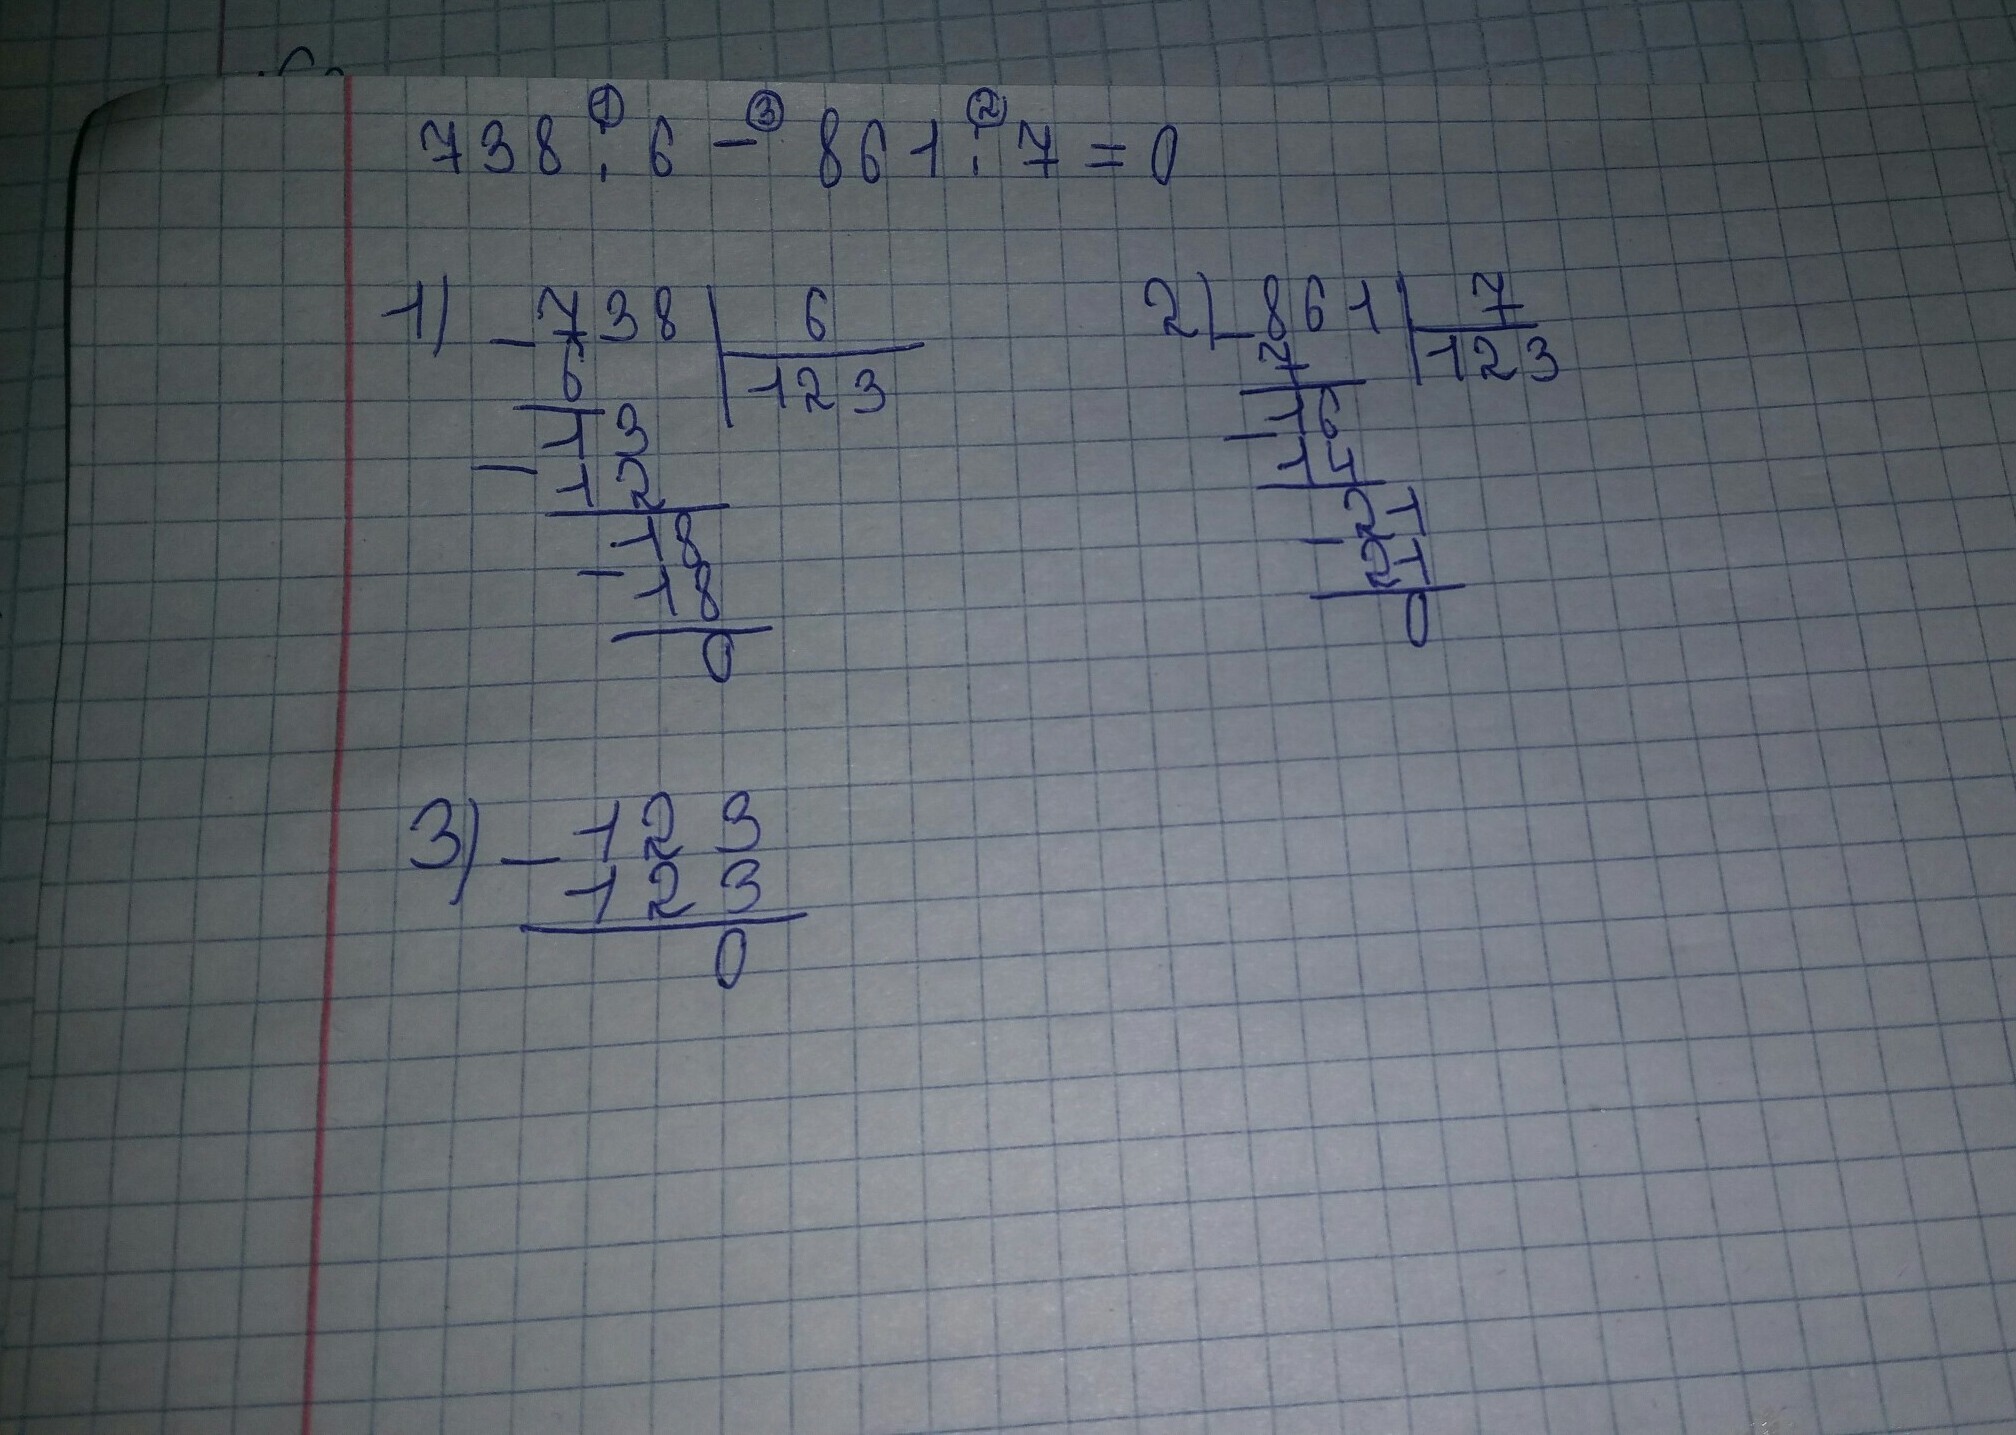 ① ③ ②
738 : 6 − 861 : 7 = 0
1) − 738 | 6
6 | 123
13
− 12
18
− 18
0
2) − 861 | 7
7 | 123
16
− 14
21
− 21
0
3) − 123
123
0